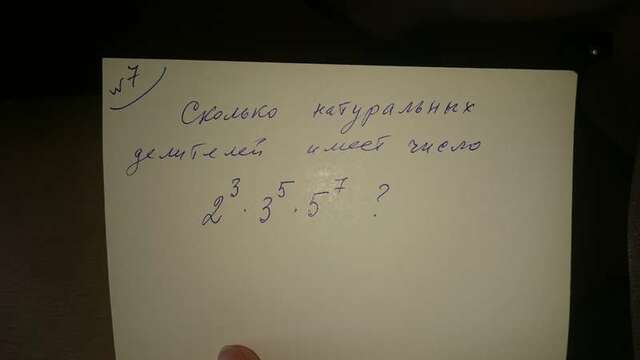 №7
Сколько натуральных
делителей имеет число
2³ · 3⁵ · 5⁷ ?